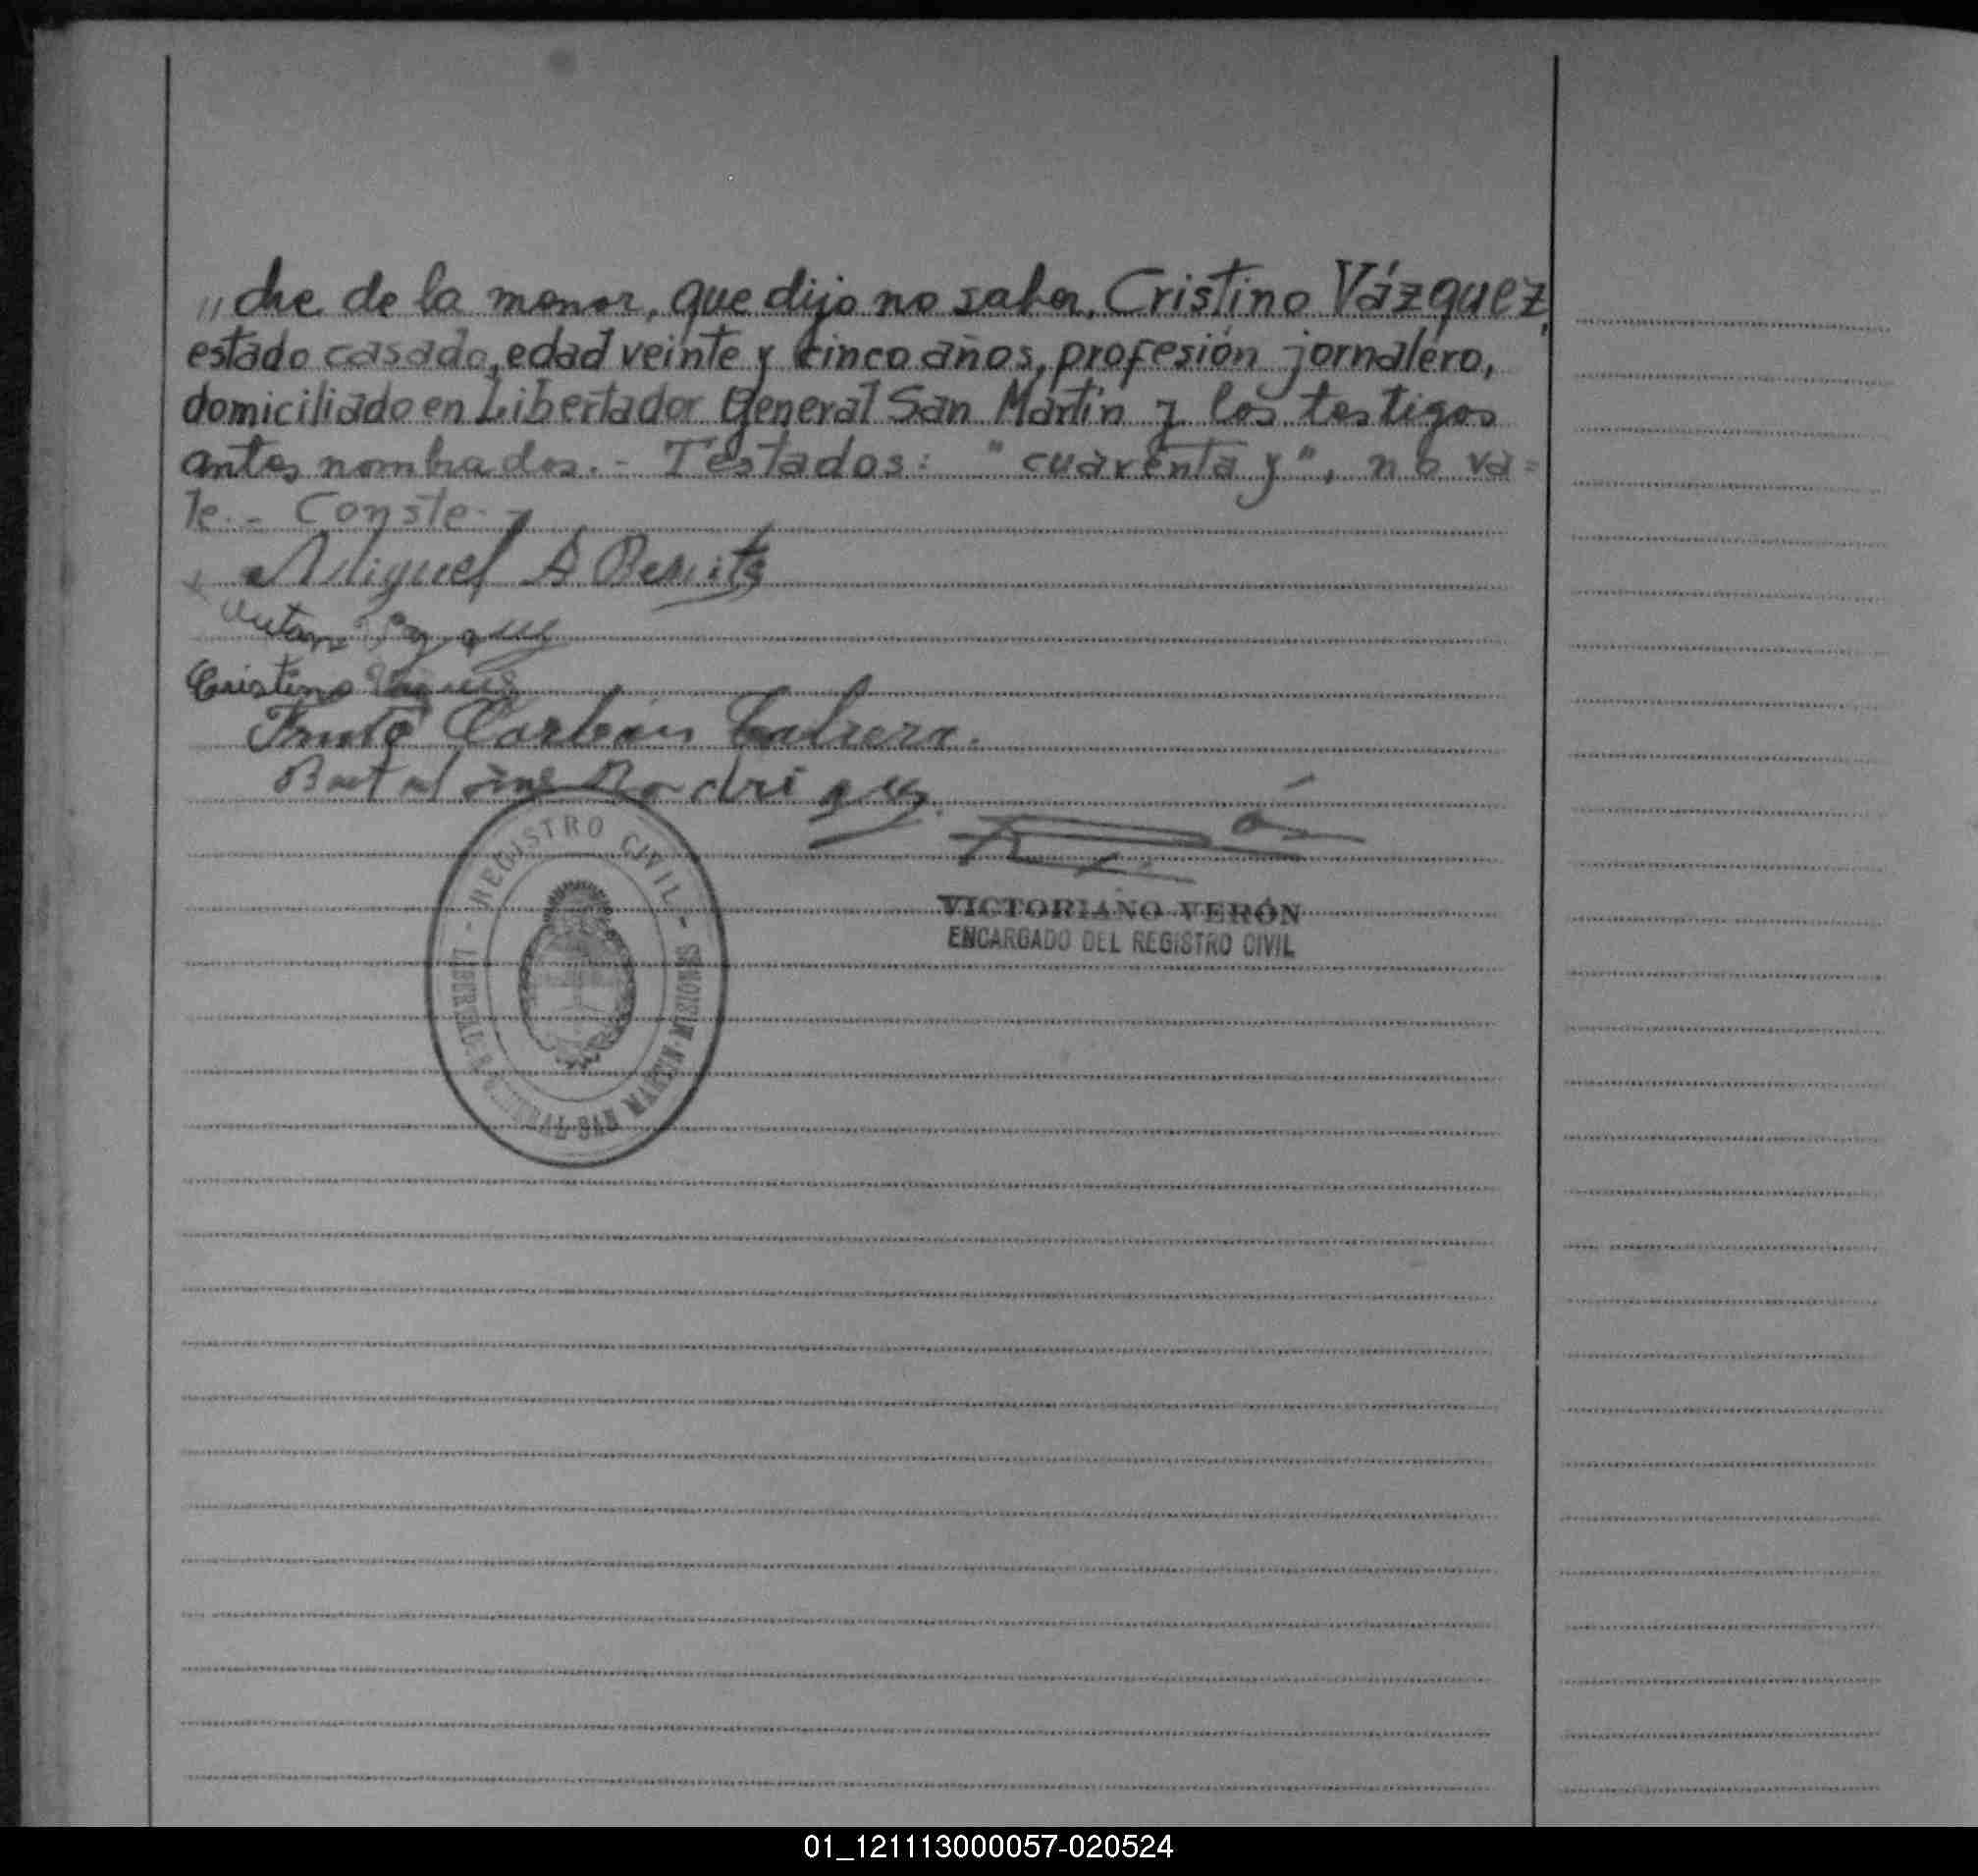 „ dre de la menor, que dijo no saber, Cristino Vázquez,
estado casado, edad veinte y cinco años, profesión jornalero,
domiciliado en Libertador General San Martín y los testigos
antes nombrados. - Testados: "cuarenta y", no va=
le. - Conste. -
Miguel A Benítez
Cristino
Fruto Carbón Cabrera.
Bartolomé Rodriguez
REGISTRO CIVIL - SENOISIM
VICTORIANO VERÓN
ENCARGADO DEL REGISTRO CIVIL
01_121113000057-020524